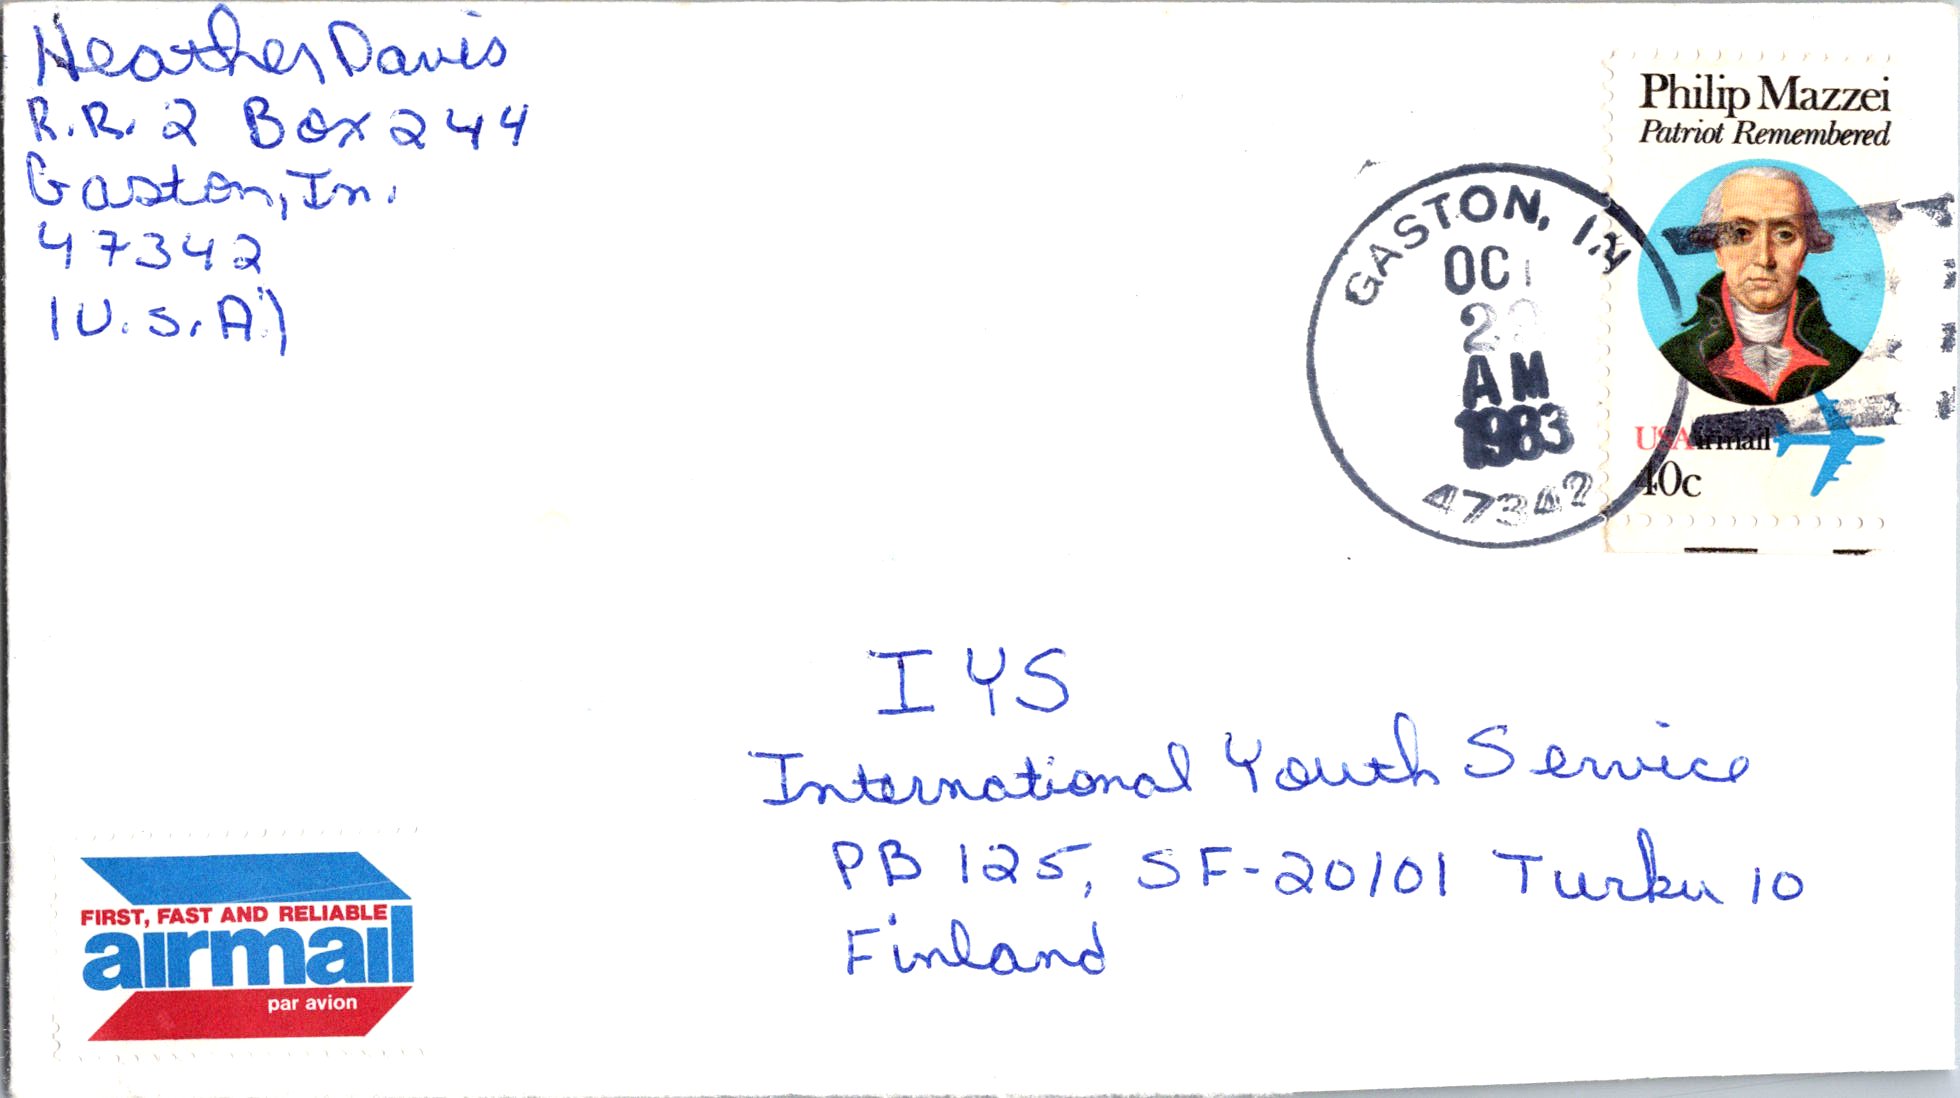 Heather Davis
R.R. 2 Box 244
Gaston, In.
47342
(U.S.A.)
Philip Mazzei
Patriot Remembered
USAirmail
40c
GASTON, IN
OCT
AM
1983
47342
IYS
International Youth Service
PB 125, SF-20101 Turku 10
Finland
FIRST, FAST AND RELIABLE
airmail
par avion